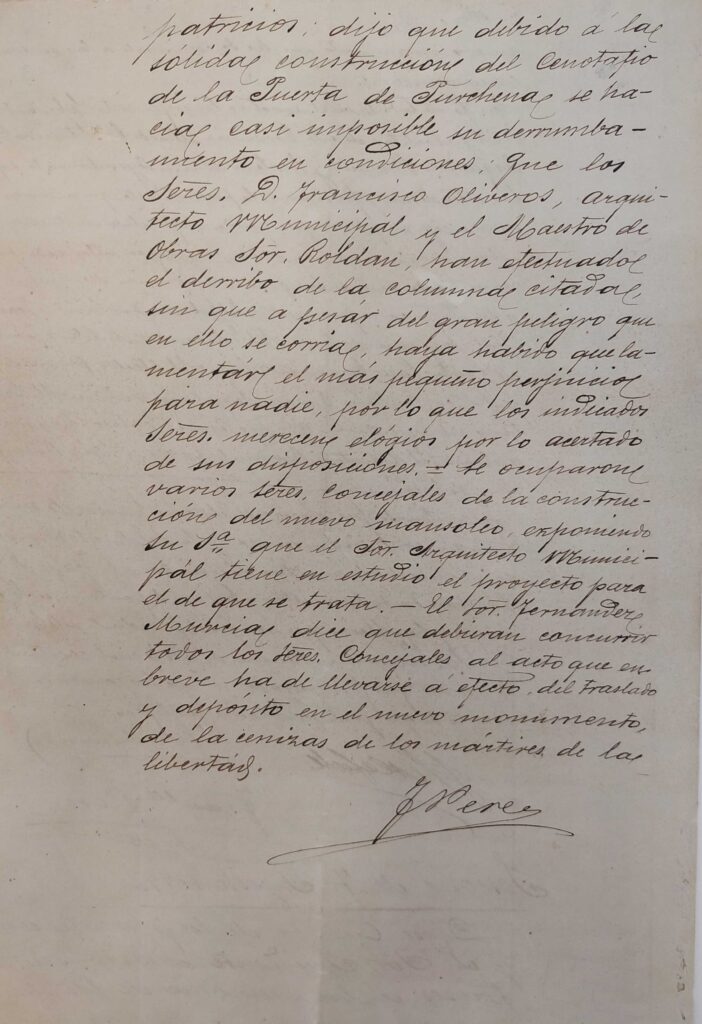 patricios; dijo que debido á la
sólida construcción del Cenotafio
de la Puerta de Purchena se ha-
cia casi imposible su derrumba-
miento en condiciones; Que los
Sères. D. Francisco Oliveros, arqui-
tecto Municipál y el Maestro de
Obras Sòr. Roldan, han efectuado
el derribo de la columna citada,
sin que a pesár del gran peligro que
en ello se corria, haya habido que la-
mentár el más pequeño perjuicio
para nadie, por lo que los indicados
Sères. merecen elógios por lo acertado
de sus disposiciones. = Se ocuparon
varios Sères. Concejales de la construc-
ción del nuevo mausoleo, exponiendo
Su Sª que el Sòr. Arquitecto Munici-
pál tiene en estudio el proyecto para
el de que se trata. — El Sòr. Fernandez
Murcia dice que debieran concurrir
todos los Sères. Concejales al acto que en
breve ha de llevarse á efecto, del traslado
y depósito en el nuevo monumento,
de la cenizas de los mártires de la
libertád.
J Perez